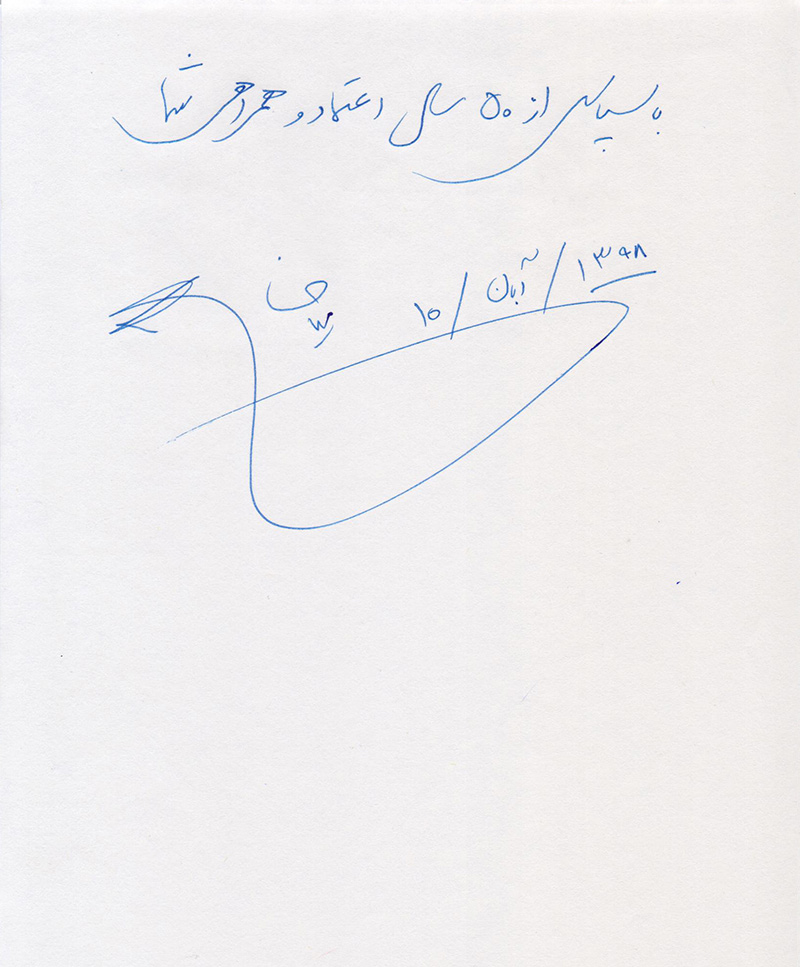 با سپاس از ۵۰ سال اعتماد و همراهی شما
۱۰ / آبان / ۱۳۹۸